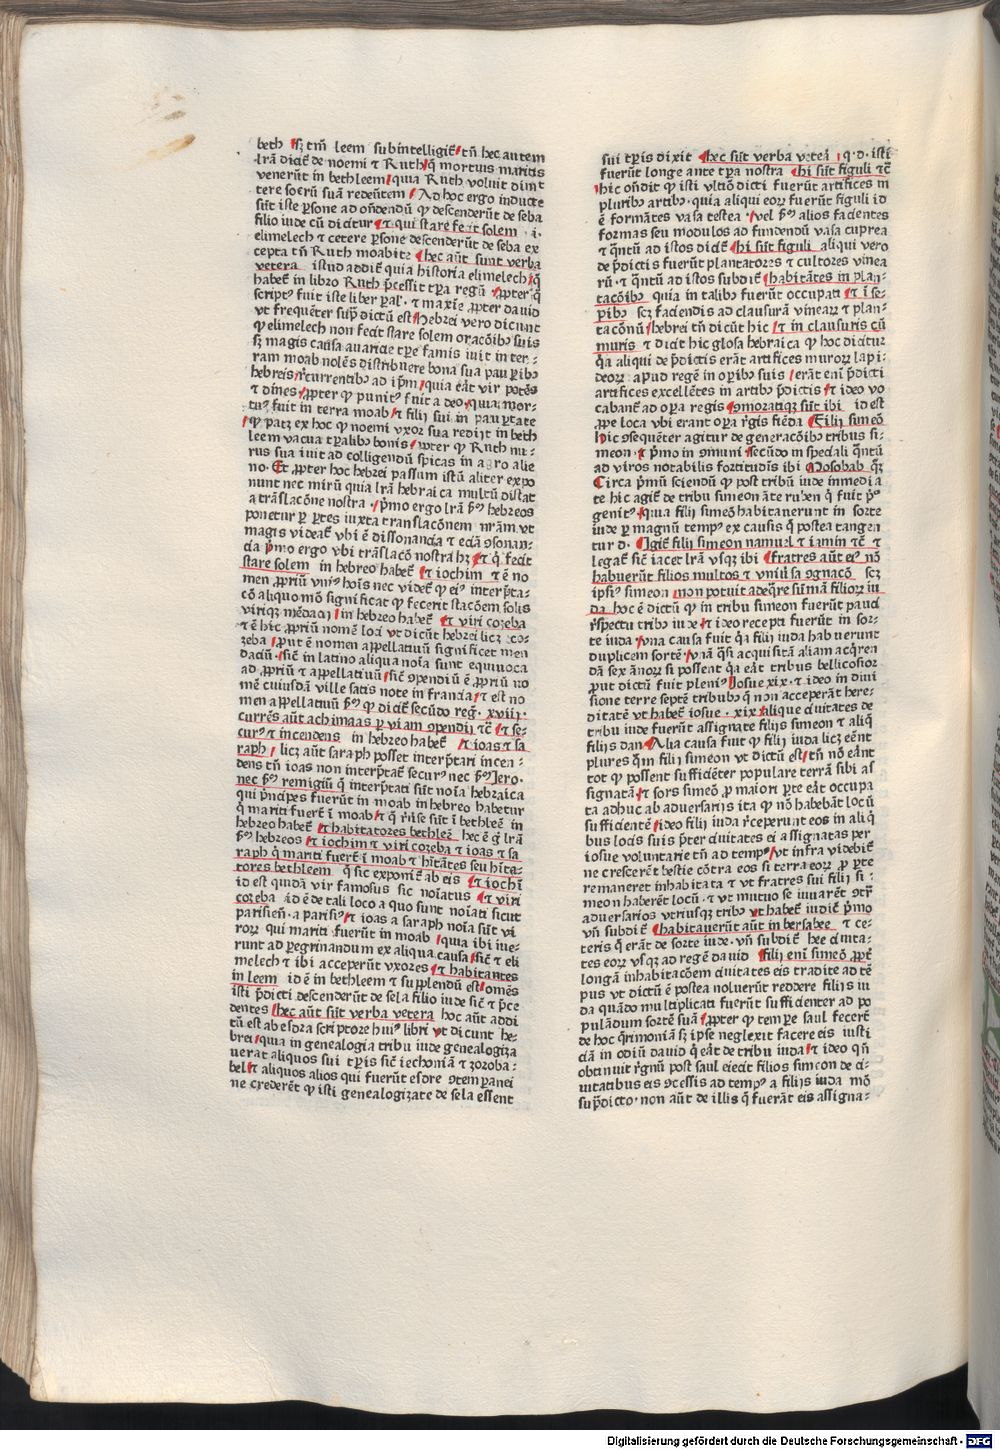 beth sꝫ tm̄ leem subintelligit̄ tn̄ hec autem
lrā dicit̄ de noemi ⁊ Ruth q̄ mortuis maritis
venerūt in bethleem quia Ruth voluit dimit
tere socrū suā redeūtem Ad hoc ergo inducte
sūt iste ꝑsone ad oñdendū ꝙ descenderūt de sela
filio iude cū dicitur ⁊ qui stare fecit solem .i.
elimelech ⁊ cetere ꝑsone descenderūt de sela ex
cepta tn̄ Ruth moabite hec aūt sunt verba
vetera istud addit̄ quia historia elimelech q̄
habet̄ in libro Ruth p̄cessit tꝑa regū ꝓpter q̄
script⁹ fuit iste liber pal̄. ⁊ maxīe ꝓpter dauid
vt frequēter sup̄ dictū est Hebrei vero dicunt
ꝙ elimelech non fecit stare solem oracōibꝫ suis
sꝫ magis causa auaricie tꝑe famis iuit in ter⸗
ram moab nolēs distribuere bona sua pauꝑibꝫ
hebreis r̄currentibꝫ ad ip̄m quia eāt vir potēs
⁊ diues ꝓpter ꝙ punit⁹ fuit a deo quia mor⸗
tu⁹ fuit in terra moab ⁊ filij sui in pauꝑtate
ꝙ patꝫ ex hoc ꝙ noemi vxor sua redijt in beth
leem vacua tꝑalibꝫ bonis ꝓpter ꝙ Ruth nu⸗
rus sua iuit ad colligendū spicas in agro alie
no. Et ꝓpter hoc hebrei passum istū aliter expo
nunt nec mirū quia lrā hebraica multū distat
a trāslacōne nostra p̄mo ergo lrā ẜm hebreos
ponetur ꝑ ꝑtes iuxta translacōnem nr̄am vt
magis videat̄ vbi ē dissonancia ⁊ eciā ꝯsonan⸗
cia p̄mo ergo vbi trāslacō nostra hꝫ ⁊ q̄ fecit
stare solem in hebreo habet̄ ⁊ iochim ⁊ ē no
men ꝓpriū vni⁹ hoīs nec videt̄ ꝙ ei⁹ interp̄ta⸗
cō aliquo mō significat ꝙ fecerit stacōem solis
viriqꝫ mēdacij in hebreo habet̄ ⁊ viri cozeba
⁊ ē hic ꝓpriū nomē loci vt dicūt hebrei licꝫ co⸗
zeba ꝓut ē nomen appellatiuū significet men
daciū sic̄ in latino aliqua noīa sunt equiuoca
ad ꝓpriū ⁊ appellatiuū sic̄ ꝯpendiū ē ꝓpriū no
mē cuiusdā ville satis note in francia ⁊ est no
men appellatiuū ẜm ꝙ dicit̄ secūdo reg̊. xviij.
currēs aūt achimaas ꝑ viam ꝯpendij ⁊c̄ ⁊ se⸗
cur⁹ ⁊ incendens in hebreo habet̄ ⁊ ioas ⁊ sa
raph licꝫ aūt saraph posset interp̄tari incen⸗
dens tn̄ ioas non interp̄tat̄ secur⁹ nec ẜm Iero.
nec ẜm remigiū q̄ interp̄tati sūt noīa hebraica
qui p̄ncipes fuerūt in moab in hebreo habetur
q̄ mariti fuert̄ ī moab ⁊ q̄ r̄u͛se sūt ī bethleē in
hebreo habet̄ ⁊ habitatores bethleē hec ē g̊ lrā
ẜm hebreos ⁊ iochim ⁊ viri cozeba ⁊ ioas ⁊ sa
raph q̄ mariti fuert̄ ī moab ⁊ hītātes seu hīta⸗
tores bethleem q̄ sic exponit̄ ab eis ⁊ iochī
id est quidā vir famosus sic noīatus ⁊ viri
cozeba id ē de tali loco a quo sunt noīati sicut
parisien̄. a parisi⁹ ⁊ ioas a saraph noīa sūt vi
roꝝ qui mariti fuerūt in moab quia ibi iue⸗
runt ad ꝑegrinandum ex aliqua causa sic̄ ⁊ eli
melech ⁊ ibi acceperūt vxores ⁊ habitantes
in leem id ē in bethleem ⁊ supplendū est omēs
isti p̄dicti descenderūt de sela filio iude sic̄ ⁊ p̄ce
dentes hec aūt sūt verba vetera hoc aūt addi
tū est ab esdra scriptore hui⁹ libri vt dicunt he⸗
brei quia in genealogia tribu iude genealogiza
uerat aliquos sui tꝑis sic̄ iechoniā ⁊ zoroba⸗
bel ⁊ aliquos alios qui fuerūt esdre ꝯtemꝑanei
ne crederēt ꝙ isti genealogizate de sela essent
sui tꝑis dixit hec sūt verba veteā q.d. isti
fuerūt longe ante tꝑa nostra hi sūt figuli ⁊c̄
hic oñdit ꝙ isti vltīo dicti fuerūt artifices in
pluribꝫ artibꝫ. quia aliqui eoꝝ fuerūt figuli id
ē formātes vasa testea. vel ẜm alios facientes
formas seu modulos ad fundendū vasa cuprea
⁊ q̄ntū ad istos dicit̄ hi sūt figuli aliqui vero
de p̄dictis fuerūt plantatores ⁊ cultores vinea
rū. ⁊ q̄ntū ad istos subdit̄ habitātes in plan⸗
tacōibꝫ quia in talibꝫ fuerūt occupati ⁊ ī se⸗
pibꝫ scꝫ faciendis ad clausurā vineaꝝ ⁊ plan⸗
tacōnū hebrei tn̄ dicūt hic ⁊ in clausuris cū
muris ⁊ dicit hic glosa hebraica ꝙ hoc dicitur
q̄a aliqui de p̄dictis erāt artifices muroꝝ lapi⸗
deoꝝ apud regē in oꝑibꝫ suis erāt enī p̄dicti
artifices excellētes in artibꝫ p̄dictis ⁊ ideo vo
cabant̄ ad oꝑa regis ꝯmoratiqꝫ sūt ibi id est
ꝓpe loca vbi erant oꝑa r̄gis fiēda Filij simeō
hic ꝯsequēter agitur de generacōibꝫ tribus si⸗
meon. ⁊ p̄mo in ꝯmuni secūdo in speciali q̄ntū
ad viros notabilis fortitudīs ibi Mosobab qꝫ
Circa p̄mū sciendū ꝙ post tribū iude inmedia
te hic agit̄ de tribu simeon āte ruben q̄ fuit p̄o
genit⁹ quia filij simeō habitauerunt in sorte
iude ꝑ magnū temp⁹ ex causis q̄ postea tangen
tur d. Igit̄ filij simeon namuel ⁊ iamin ⁊c̄ ⁊
legat̄ sic̄ iacet lrā vsqꝫ ibi fratres aūt ei⁹ nō
habuerūt filios multos ⁊ vniu͛sa ꝯgnacō scꝫ
ip̄si⁹ simeon non potuit adeq̄re sūmā filioꝝ iu
da hoc ē dictū ꝙ in tribu simeon fuerūt pauci
r̄spectu tribꝫ iude ⁊ ideo recepti fuerūt in sor⸗
te iuda vna causa fuit q̄a filij iuda habuerunt
duplicem sortē vnā q̄si acquisitā aliam acq̄ren
dā sex ānoꝝ si possent q̄a eāt tribus bellicosior
ꝓut dictū fuit pleni⁹ Iosue xix. ⁊ ideo in diui
sione terre septē tribubꝫ q̄ non acceperāt here⸗
ditatē vt habet̄ iosue. xix. alique ciuitates de
tribu iude fuerūt assignate filijs simeon ⁊ aliq̄
filijs dan Alia causa fuit ꝙ filij iuda licꝫ eēnt
plures q̄m filij simeon vt dictū est tn̄ nō eānt
tot ꝙ possent sufficiēter populare terrā sibi as
signatā ⁊ sors simeō ꝓ maiori ꝑte eāt occupa
ta adhuc ab aduersarijs ita ꝙ nō habebāt locū
sufficientē ideo filij iuda r̄ceperunt eos in aliq̄
bus locis suis p̄ter ciuitates ei assignatas per
iosue voluntarie tn̄ ad temp⁹ vt infra videbit̄
ne crescerēt bestie cōtra eos si terra eoꝝ ꝓ ꝑte
remaneret inhabitata ⁊ vt fratres sui filij si⸗
meon haberēt locū. ⁊ vt mutuo se iuuarēt ꝯtr̄
aduersarios vtriusqꝫ tribꝫ vt habet̄ iudic̄ p̄mo
vn̄ subdit̄ habitauerūt aūt in bersabee ⁊ ce⸗
teris q̄ erāt de sorte iude. vn̄ subdit̄ hee ciuita⸗
tes eoꝝ vsqꝫ ad regē dauid filij enī simeō ꝓpt̄
longā inhabitacōem ciuitates eis tradite ad tē
pus vt dictū ē postea noluerūt reddere filijs iu
da quādo multiplicati fuerūt sufficienter ad po
pulādum sortē suā ꝓpter ꝙ tempe saul fecert̄
de hoc q̄rimoniā sꝫ ipse neglexit facere eis iusti
ciā in odiū dauid q̄ eāt de tribu iuda ⁊ ideo qn̄
obtinuit r̄gnū post saul eiecit filios simeon de ci⸗
uitatibus eis ꝯcessis ad temp⁹ a filijs iuda mō
sup̄dicto. non aūt de illis q̄ fuerāt eis assigna⸗
Digitalisierung gefördert durch die Deutsche Forschungsgemeinschaft - DFG